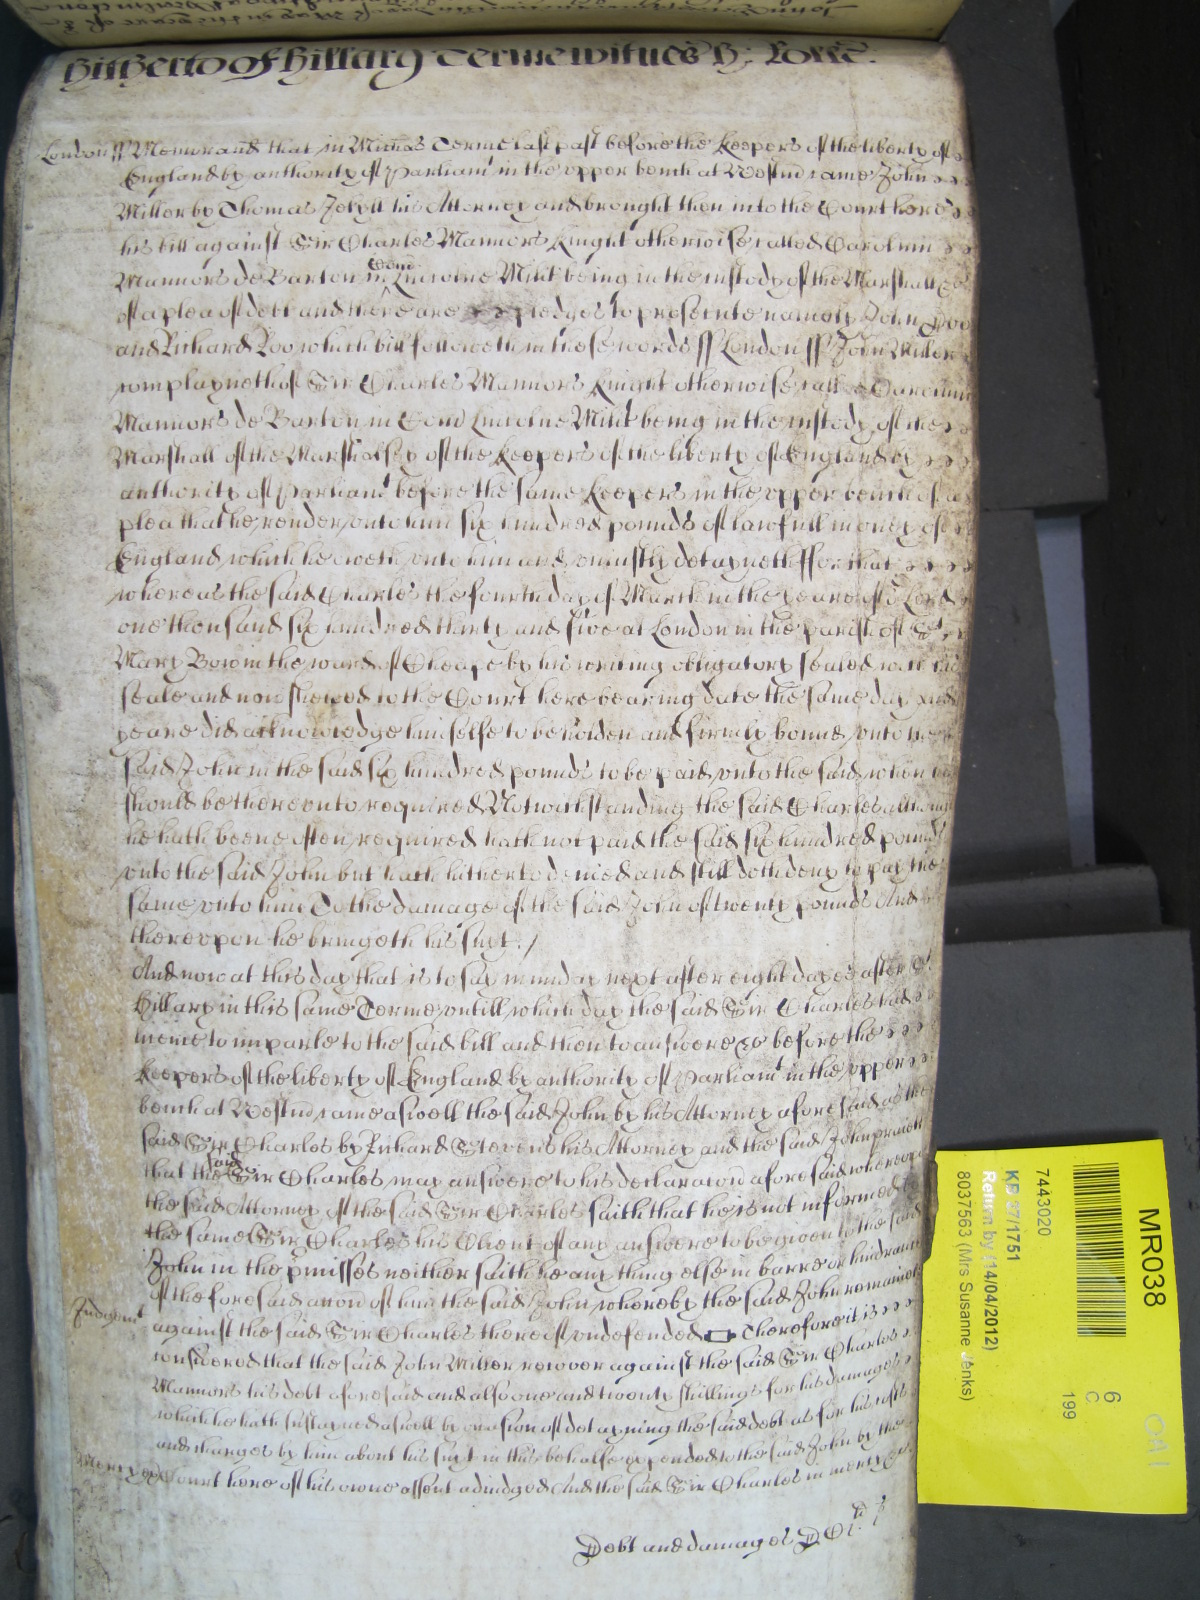 Hitherto of Hillary Terme witnes H: Rolle.
London ss Memorand that in Michas Terme last past before the Keepers of the liberty of
England by authority of Parliamt in the upper bench at Westmr came John
Miller by Thomas Jekyll his Attorney and brought then into the Court here
his bill against Sir Charles Mannors Knight otherwise called Carolum
Mannors de Barton in Com Lincolne Milit being in the custody of the Marshall &c
of a plea of debt and there are pledges to prosecute namely John Doo
and Richard Roo which bill followeth in these words ss London ss John Miller
complayneth of Sir Charles Mannors Knight otherwise called Carolum
Mannors de Barton in Com Lincolne Milit being in the custody of the
Marshall of the Marshalsey of the Keepers of the liberty of England by
authority of Parliamt before the same Keepers in the upper bench of a
plea that he render unto him six hundred pounds of lawfull money of
England which he oweth unto him and uniustly detayneth ffor that
whereas the said Charles the fourth day of March in the yeare of or Lord
one thousand six hundred thirty and five at London in the parish of St
Mary Bow in the ward of Cheape by his writing obligatory sealed with his
seale and now shewed to the Court here bearing date the same day and
yeare did acknowledge himselfe to be holden and firmly bound unto the
said John in the said six hundred pounds to be paid unto the said when he
should be thereunto required Notwithstanding the said Charles although
he hath beene often required hath not paid the said six hundred pounds
unto the said John but hath hitherto denied and still doth deny to pay the
same unto him To the damage of the said John of twenty pounds And
thereupon he bringeth his suyt. /
And now at this day that is to say munday next after eight dayes after St
Hillary in this same Terme untill which day the said Sir Charles had
licence to imparle to the said bill and then to answere &c before the
Keepers of the liberty of England by authority of Parliamt in the upper
bench at Westmr came aswell the said John by his Attorney aforesaid as the
said Sir Charles by Richard Stevens his Attorney and the said John prayeth
that the said Sir Charles may answere to his declaracon aforesaid whereupon
the said Attorney of the said Sir Charles saith that he is not informed by
the same Sir Charles his Clyent of any answere to be given to the said
John in the pmisses neither saith he any thing else in barre or hindrance
of the foresaid accon of him the said John whereby the said John remaineth
Judgemt against the said Sir Charles thereof undefended Therefore it is
considered that the said John Miller recover against the said Sir Charles
Mannors his debt aforesaid and also one and twenty shillings for his damages
which he hath sustayned aswell by occasion of detayning the said debt as for his costs
and charges by him about his suyt in this behalfe expended to the said John by the
Mercy &c Court here of his owne assent adiudged And the said Sir Charles in mercy &c
Debt and damages
MR038
6
C
199
7443020
KB 27/1751
Return by (14/04/2012)
8037563 (Mrs Susanne Jenks)